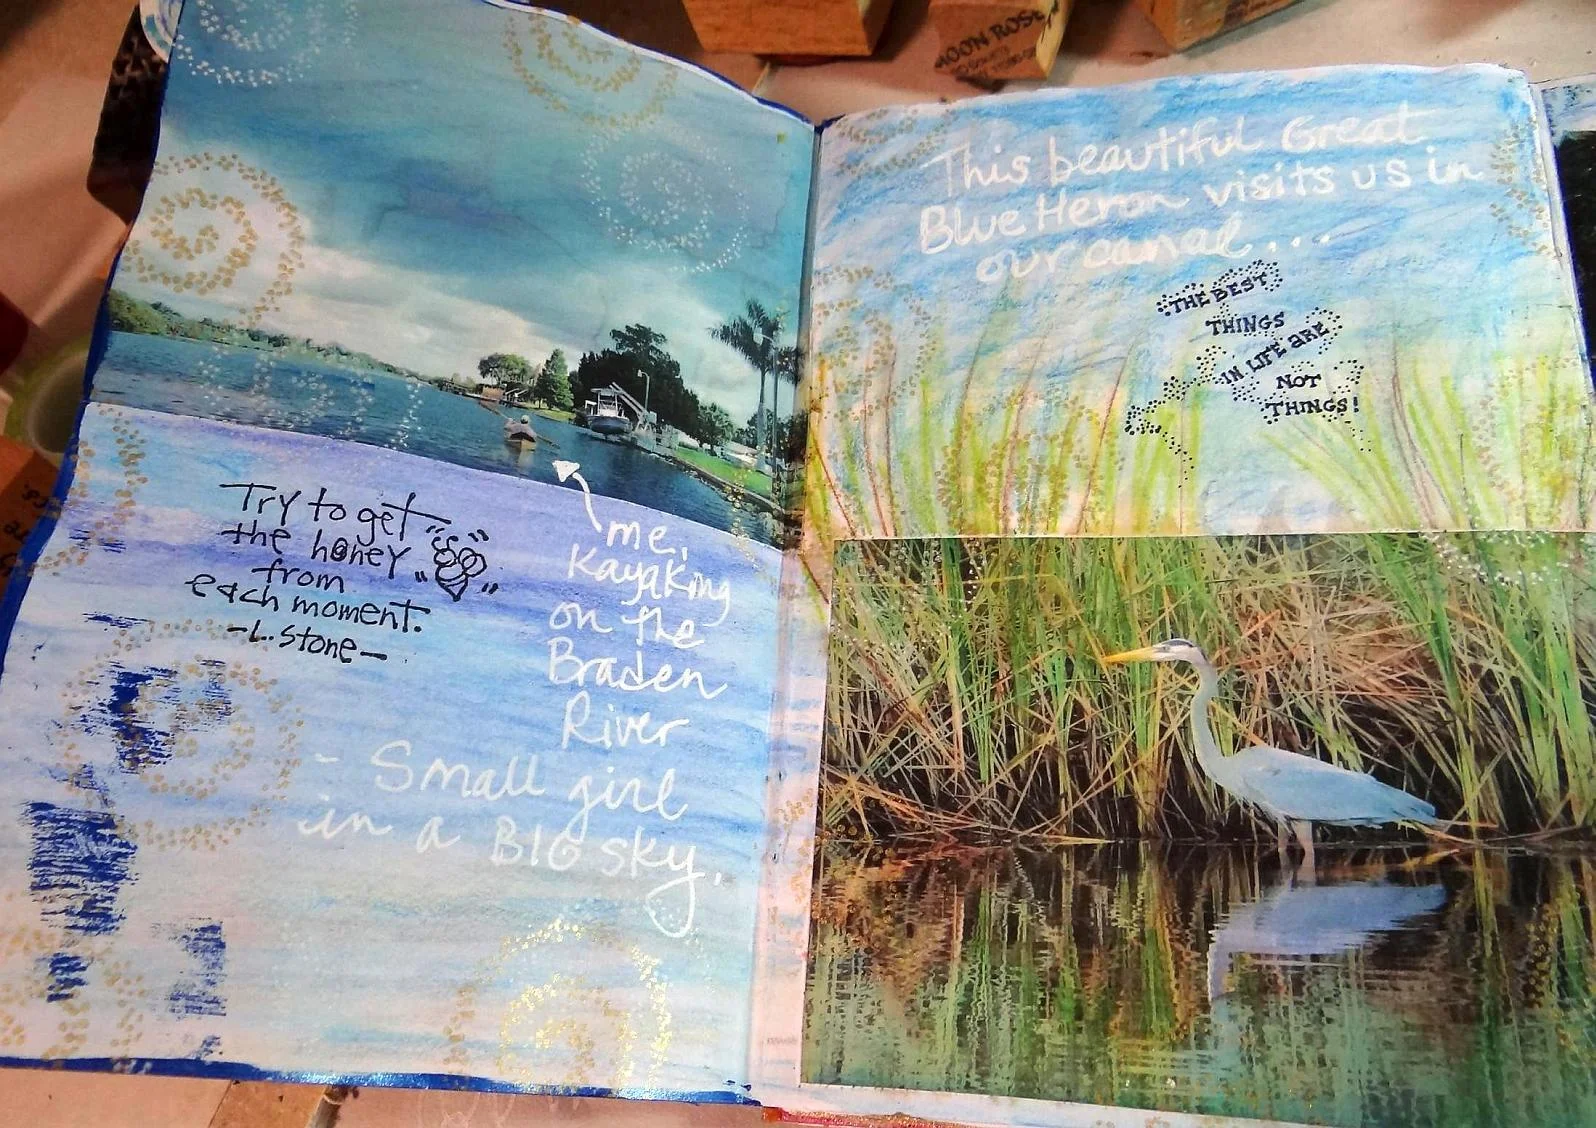 Try to get
the honey
from
each moment.
-L. Stone-
me,
Kayaking
on the
Braden
River
- Small girl
in a BIG sky.
This beautiful Great
Blue Heron visits us in
our canal...
THE BEST
THINGS
IN LIFE ARE
NOT
THINGS!
MOON ROSE